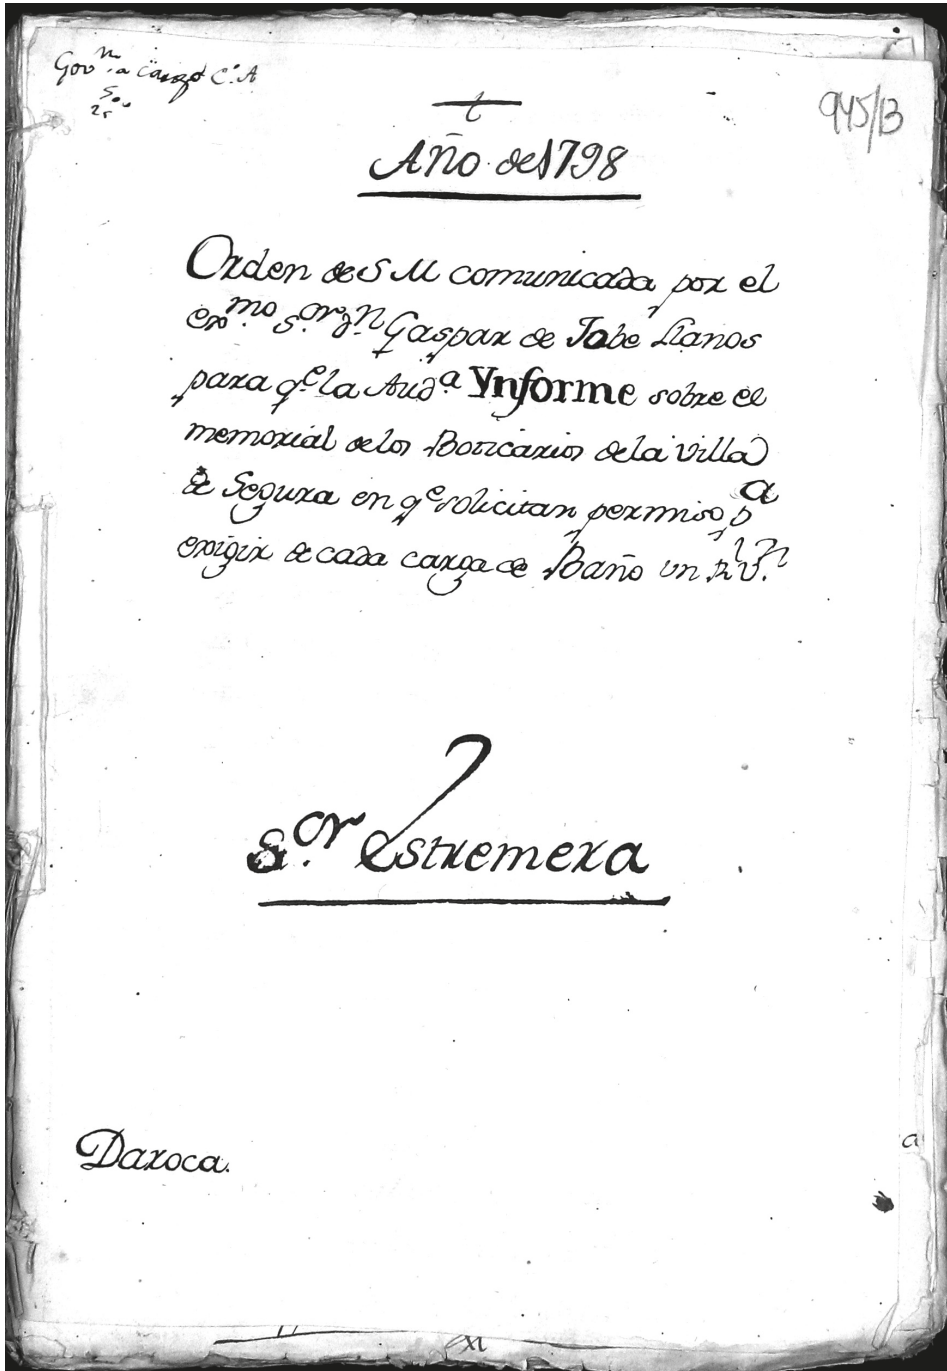 945/13
t
Año de 1798
Orden de S M comunicada por el
exmo. Sor. Dn. Gaspar de Jobe Llanos
para qe. la Auda Ynforme sobre el
memorial de los Boticarios de la Villa
de Segura en qe solicitan permiso pa
exigir de cada carga de Baño un R Vn.
Sor. Estremera
Daroca.
a
XI